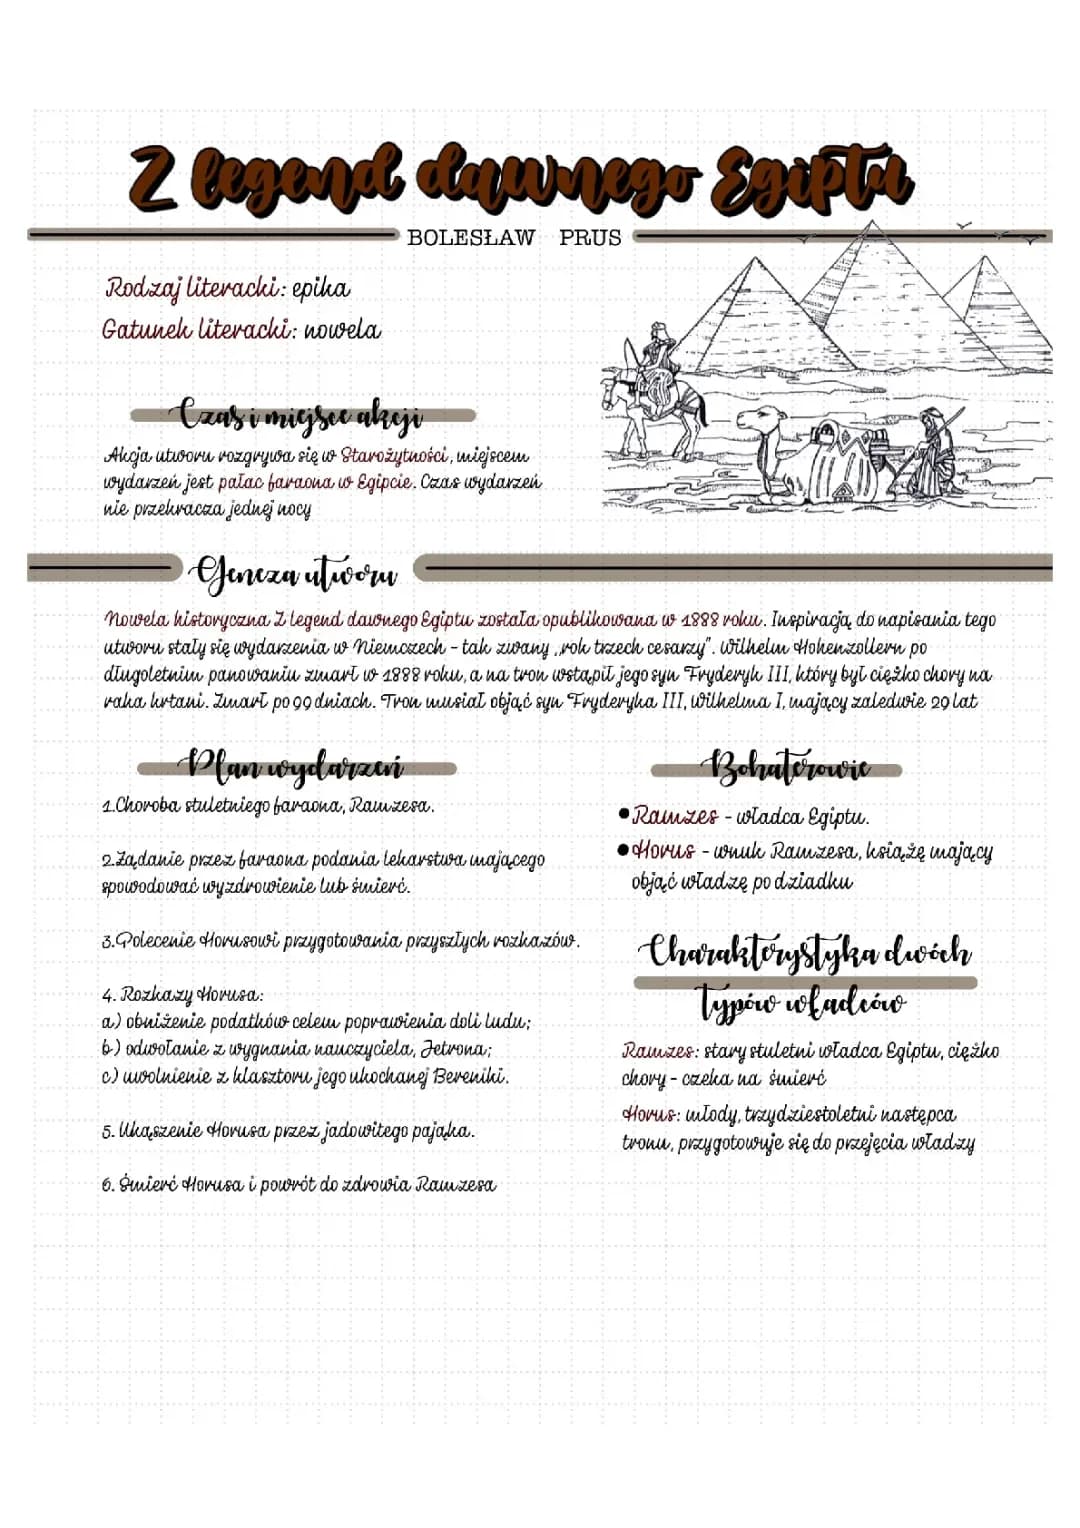 Z legend dawnego Egiptu
BOLESŁAW PRUS
Rodzaj literacki: epika
Gatunek literacki: nowela
Czas i miejsce akcji
Akcja utworu rozgrywa się w Starożytności, miejscem
wydarzeń jest pałac faraona w Egipcie. Czas wydarzeń
nie przekracza jednej nocy
Geneza utworu
Nowela historyczna Z legend dawnego Egiptu została opublikowana w 1888 roku. Inspiracją do napisania tego
utworu stały się wydarzenia w Niemczech - tak zwany „rok trzech cesarzy". Wilhelm Hohenzollern po
długoletnim panowaniu zmarł w 1888 roku, a na tron wstąpił jego syn Fryderyk III, który był ciężko chory na
raka krtani. Zmarł po 99 dniach. Tron musiał objąć syn Fryderyka III, Wilhelma I, mający zaledwie 29 lat
Plan wydarzeń
1.Choroba stuletniego faraona, Ramzesa.
2.Żądanie przez faraona podania lekarstwa mającego
spowodować wyzdrowienie lub śmierć.
3.Polecenie Horusowi przygotowania przyszłych rozkazów.
4. Rozkazy Horusa:
a) obniżenie podatków celem poprawienia doli ludu;
b) odwołanie z wygnania nauczyciela, Jetrona;
c) uwolnienie z klasztoru jego ukochanej Bereniki.
5. Ukąszenie Horusa przez jadowitego pająka.
6. Śmierć Horusa i powrót do zdrowia Ramzesa
Bohaterowie
•Ramzes - władca Egiptu.
•Horus - wnuk Ramzesa, książę mający
objąć władzę po dziadku
Charakterystyka dwóch
typów władców
Ramzes: stary stuletni władca Egiptu, ciężko
chory - czeka na śmierć
Horus: młody, trzydziestoletni następca
tronu, przygotowuje się do przejęcia władzy